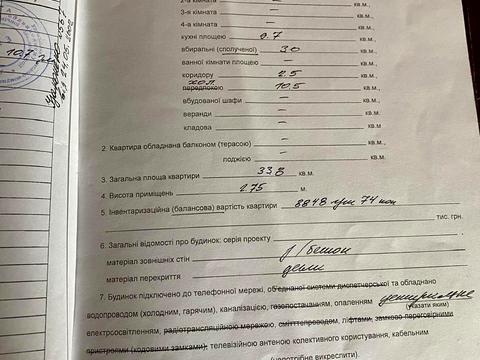 2-а кімната — кв.м.
3-я кімната — кв.м.,
4-а кімната — кв.м.
кухні площею 9.7 кв.м.,
вбиральні (сполученої) 3.0 кв.м.
ванної кімнати площею — кв.м.
коридору 2.5 кв.м.,
хол.
передпокою 10.5 кв.м.,
вбудованої шафи — кв.м.,
веранди — кв.м.,
кладова — кв.м
2. Квартира обладнана балконом (терасою) — кв.м.
лоджією — кв.м.
3. Загальна площа квартири 33.8 кв.м.
4. Висота приміщень 2.75 м.
5. Інвентаризаційна (балансова) вартість квартири 8848 грн 74 коп
тис. грн.
6. Загальні відомості про будинок: серія проекту
матеріал зовнішніх стін з/бетон
матеріал перекриття
7. Будинок підключено до телефонної мережі, об'єднаної системи диспетчерської та обладнано
водопроводом (холодним, гарячим), каналізацією, газопостачанням, опаленням
(указати яким)
електроосвітленням, радіотрансляційною мережою, сміттепроводом, ліфтами, замково переговорними
пристроями (кодовими замками), телевізійною антеною колективного користування, кабельним
(непотрібне викреслити).